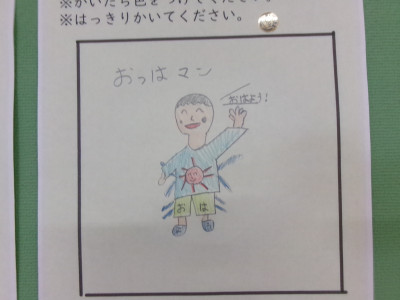 ※かいたら色をつけてください。
※はっきりかいてください。
おっはマン
おはよう!
お は